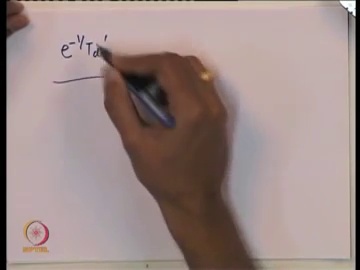 e^{-1/T_d'}
NPTEL